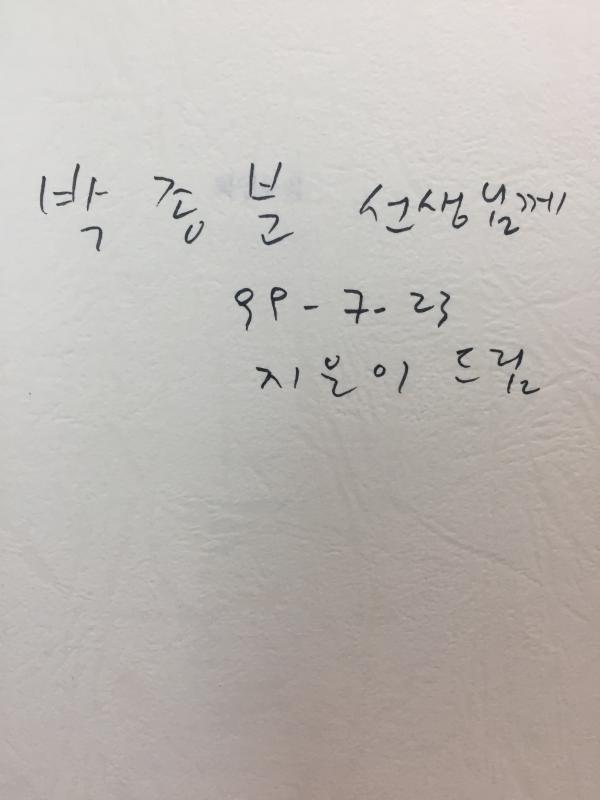 박종분 선생님께
99-7-23
지은이 드림